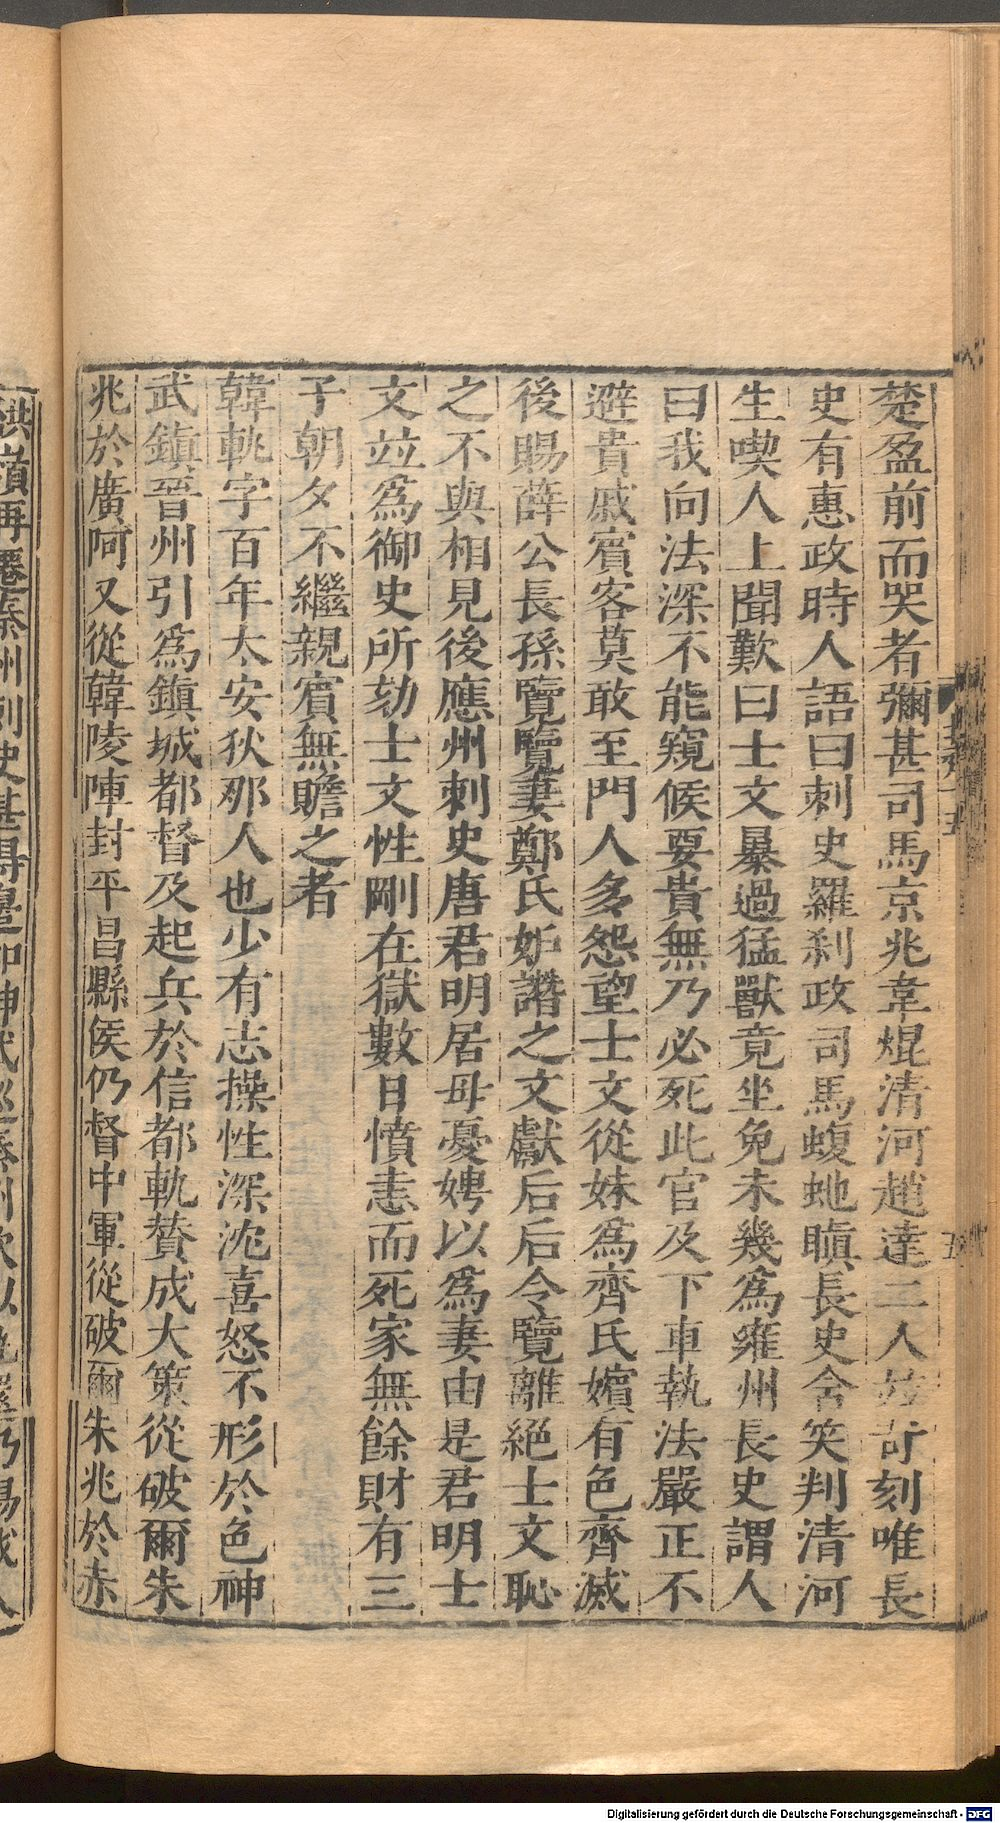 楚盈前而哭者彌甚司馬京兆韋焜清河趙達二人並苛刻唯長
史有惠政時人語曰刺史羅刹政司馬蝮虵瞋長史含笑判清河
生喫人上聞歎曰士文暴過猛獸竟坐免未幾爲雍州長史謂人
曰我向法深不能窺候要貴無乃必死此官及下車執法嚴正不
避貴戚賓客莫敢至門人多怨望士文從妹爲齊氏嬪有色齊滅
後賜薛公長孫覽覽妻鄭氏妒譖之文獻后后令覽離絕士文恥
之不與相見後應州刺史唐君明居母憂娉以爲妻由是君明士
文竝爲御史所劾士文性剛在獄數日憤恚而死家無餘財有三
子朝夕不繼親賓無贍之者
韓軌字百年太安狄那人也少有志操性深沈喜怒不形於色神
武鎮晉州引爲鎮城都督及起兵於信都軌贊成大策從破爾朱
兆於廣阿又從韓陵陣封平昌縣侯仍督中軍從破爾朱兆於赤
Digitalisierung gefördert durch die Deutsche Forschungsgemeinschaft - DFG